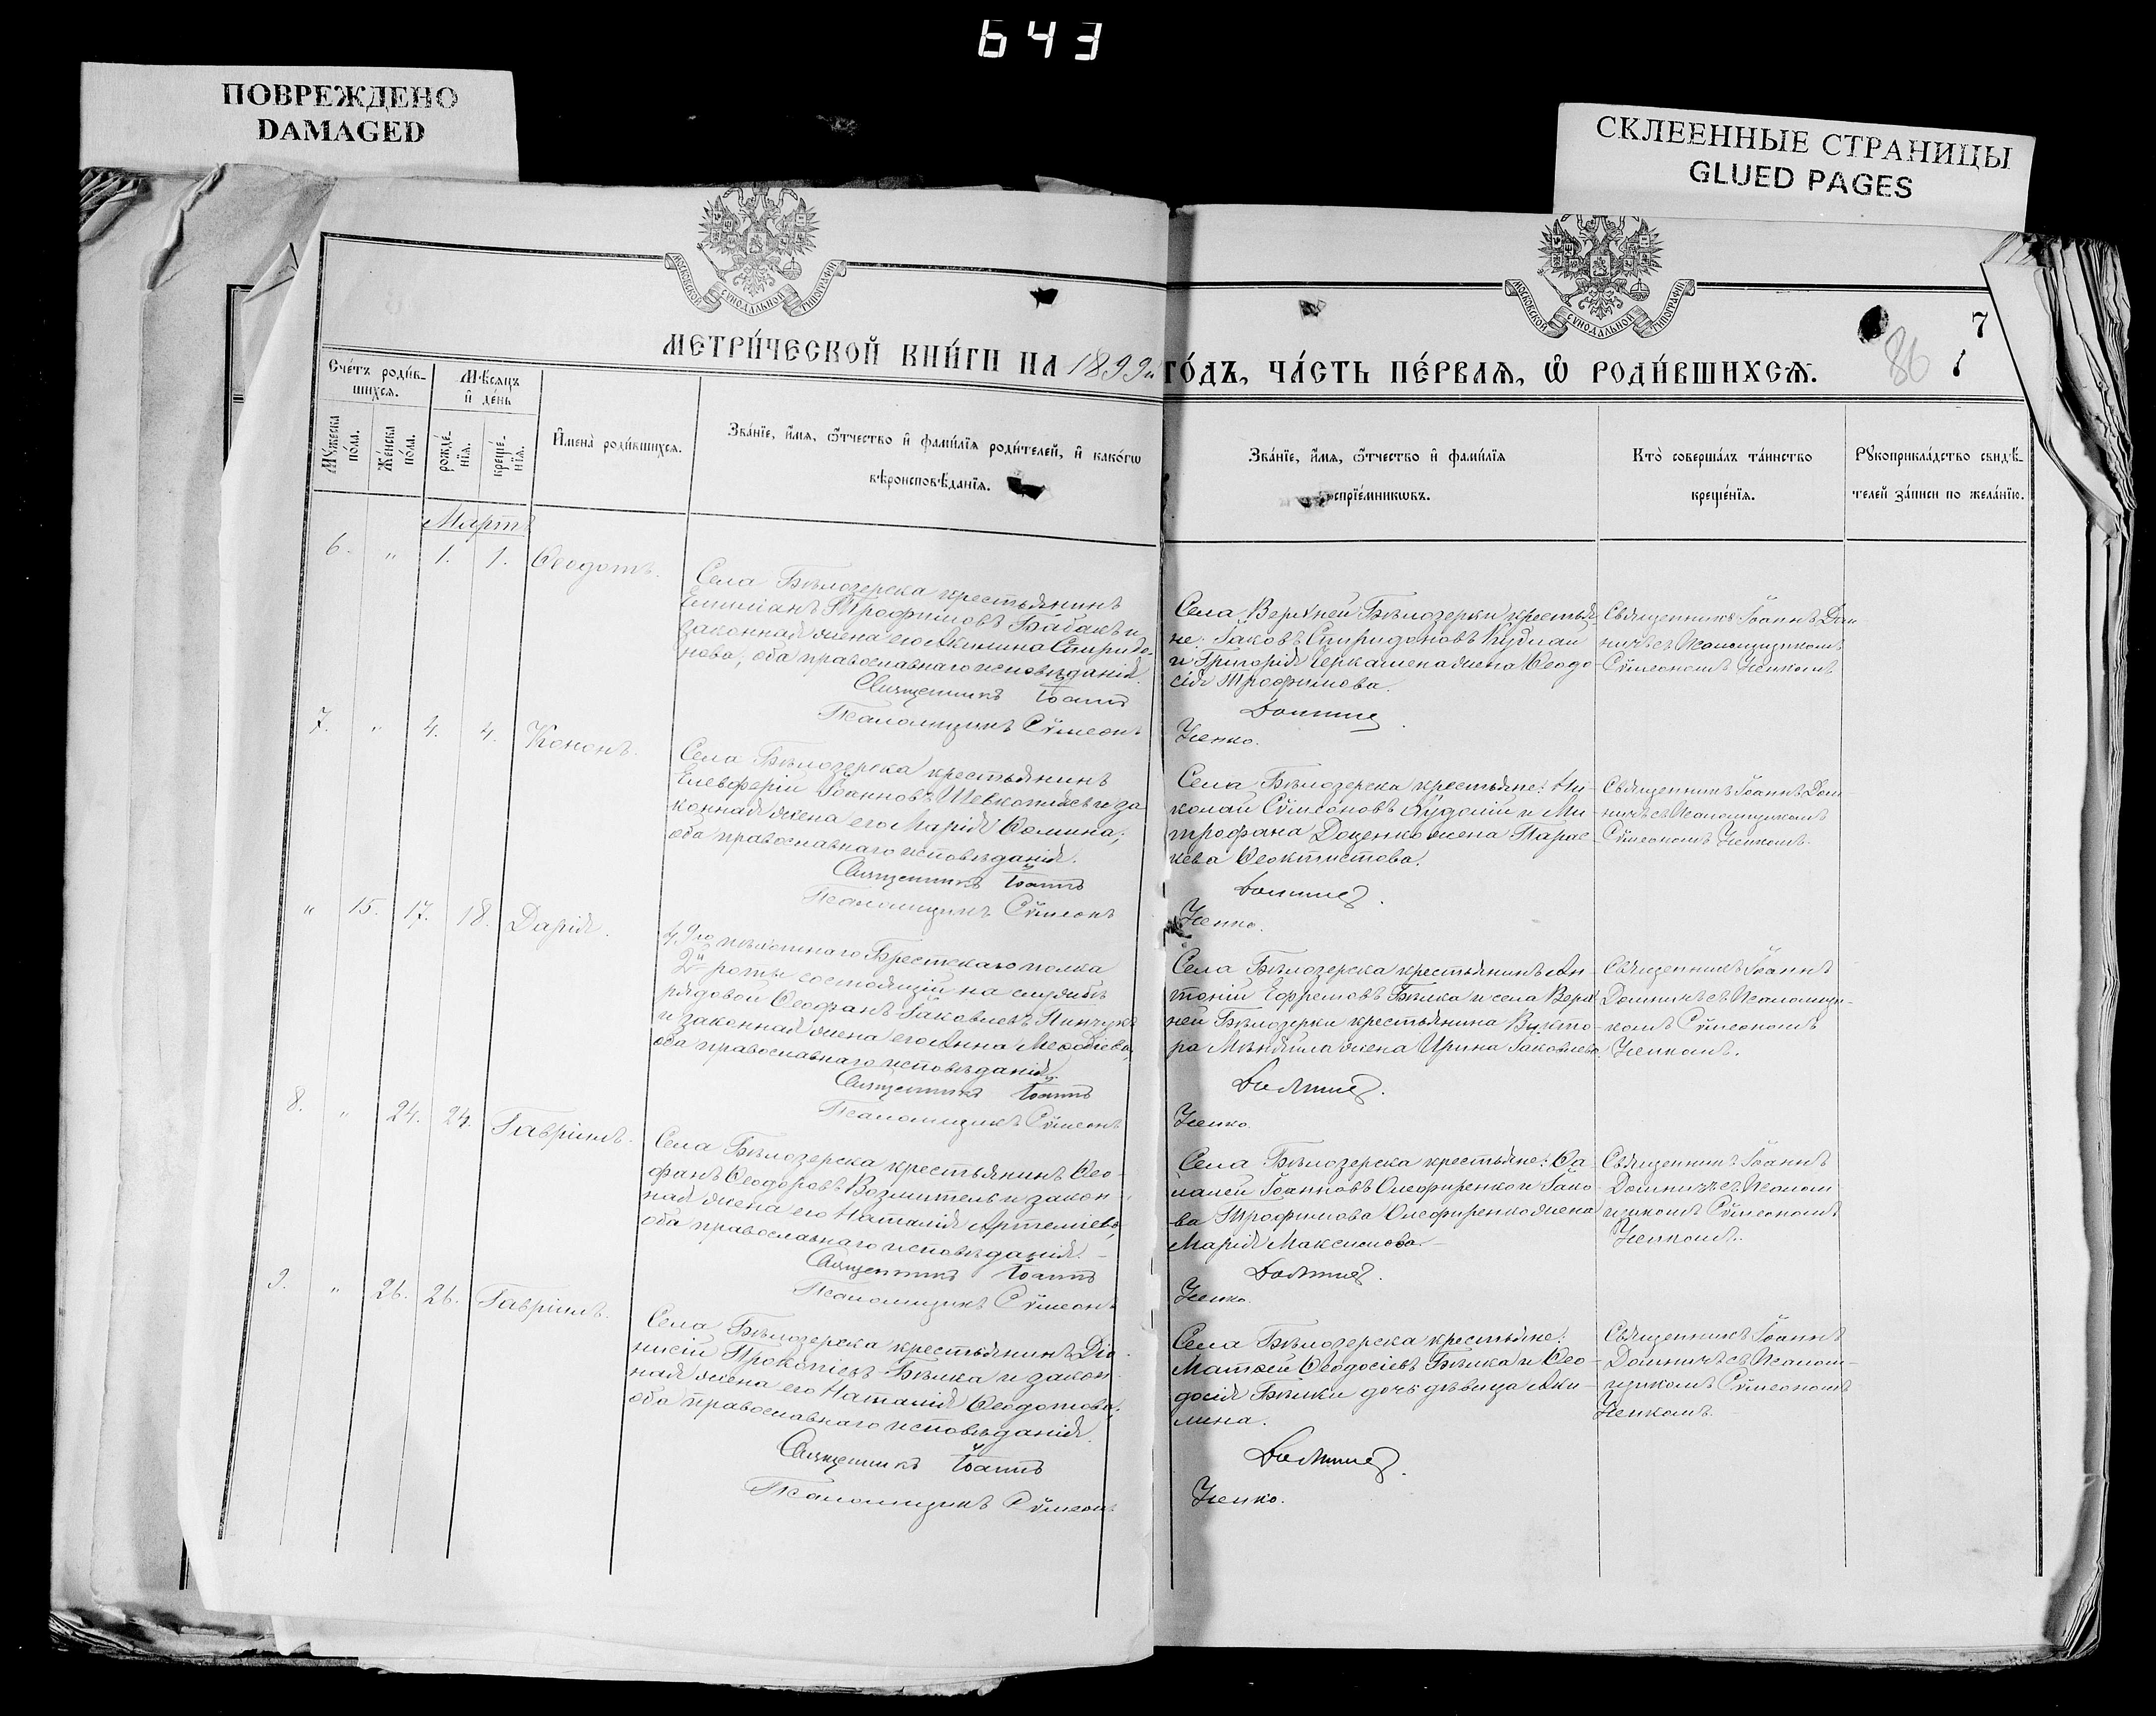 643
ПОВРЕЖДЕНО
DAMAGED
СКЛЕЕННЫЕ СТРАНИЦЫ
GLUED PAGES
МОСКОВСКОЙ СѴНОДАЛЬНОЙ ТИПОГРАФІИ
МОСКОВСКОЙ СѴНОДАЛЬНОЙ ТИПОГРАФІИ
7
86
МЕТРИ́ЧЕСКОЙ КНИ́ГИ НА 1899й ГО́ДЪ, ЧА́СТЬ ПЕ́РВАЯ, Ѡ҆ РОДИ́ВШИХСЯ.
Сче́тъ роди́в-
шихся.
Мѣсяцъ
и҆ де́нь
Мꙋ́жеска
по́ла.
Же́нска
по́ла.
рожде́-
нїя.
креще́-
нїя.
И҆мена̀ роди́вшихся.
Зва́нїе, и҆́мя, ѻ҆́тчество и҆ фами́лїя роди́телей, и҆ како́гѡ
вѣроисповѣ́данїя.
Зва́нїе, и҆́мя, ѻ҆́тчество и҆ фами́лїя
воспрїе́мникѡвъ.
Кто̀ соверша́лъ та́инство
креще́нїя.
Рꙋкоприкла́дство свидѣ́-
телей за́писи по жела́нїю.
Мартъ
6. " 1. 1. Ѳеодотъ.
Села Бѣлозерска крестьянинъ
Емиліанъ Трофимовъ Бабакъ и
законная жена его Акилина Спиридо-
нова, оба православнаго исповѣданія.
Священникъ Іоаннъ
Псаломщикъ Сѵмеонъ
Села Верхней Бѣлозерки крестья-
не: Іаковъ Спиридоновъ
и Григорія жена Ѳеодо-
сія Трофимова.
Домнич
Ценко.
Священникъ Іоаннъ Дом-
ничъ съ Псаломщикомъ
Сѵмеономъ Ценкомъ
7. " 4. 4. Кононъ.
Села Бѣлозерска крестьянинъ
Елевферій Іоанновъ и за
конная жена его Марія Ѳомина,
оба православнаго исповѣданія.
Священникъ Іоаннъ
Псаломщикъ Сѵмеонъ
Села Бѣлозерска крестьяне: Ни-
колай Сѵмеоновъ и Ми-
трофана Доценко жена Парас-
кева Ѳеоктистова.
Домнич
Ценко.
Священникъ Іоаннъ Дом-
ничъ съ Псаломщикомъ
Сѵмеономъ Ценкомъ.
" 15. 17. 18. Дарія.
49го пѣхотнаго Брестскаго полка
2й роты состоящій на службѣ
рядовой Ѳеофанъ Іаковлевъ Пинчукъ
и законная жена его Анна Меѳодіева,
оба православнаго исповѣданія.
Священникъ Іоаннъ
Псаломщикъ Сѵмеонъ
Села Бѣлозерска крестьянинъ Ан-
тоній Ефремовъ Бѣлка и села Верх-
ней Бѣлозерки крестьянина Викто-
ра жена Ирина Іаковлева
Домнич.
Ценко.
Священникъ Іоаннъ
Домничъ съ Псаломщи-
комъ Сѵмеономъ
Ценкомъ.
8. " 24. 24. Гавріилъ.
Села Бѣлозерска крестьянинъ Ѳео-
фанъ Ѳеодоровъ и закон-
ная жена его Наталія Артеміева,
оба православнаго исповѣданія.
Священникъ Іоаннъ
Псаломщикъ Сѵмеонъ
Села Бѣлозерска крестьяне: Ѳа-
лалей Іоанновъ Олефиренко и Іако-
ва Трофимова Олефиренко жена
Марія Максимова.
Домнич.
Ценко.
Священникъ Іоаннъ
Домничъ съ Псалом-
щикомъ Сѵмеономъ
Ценкомъ.
9. " 26. 26. Гавріилъ.
Села Бѣлозерска крестьянинъ Діо-
нисій Прокопіевъ Бѣлка и закон-
ная жена его Наталія Ѳеодотова,
оба православнаго исповѣданія.
Священникъ Іоаннъ
Псаломщикъ Сѵмеонъ
Села Бѣлозерска крестьяне:
Матѳей Ѳеодосіевъ Бѣлка и Ѳео-
досія Бѣлки дочь дѣвица Аки-
лина.
Домнич.
Ценко.
Священникъ Іоаннъ
Домничъ съ Псалом-
щикомъ Сѵмеономъ
Ценкомъ.